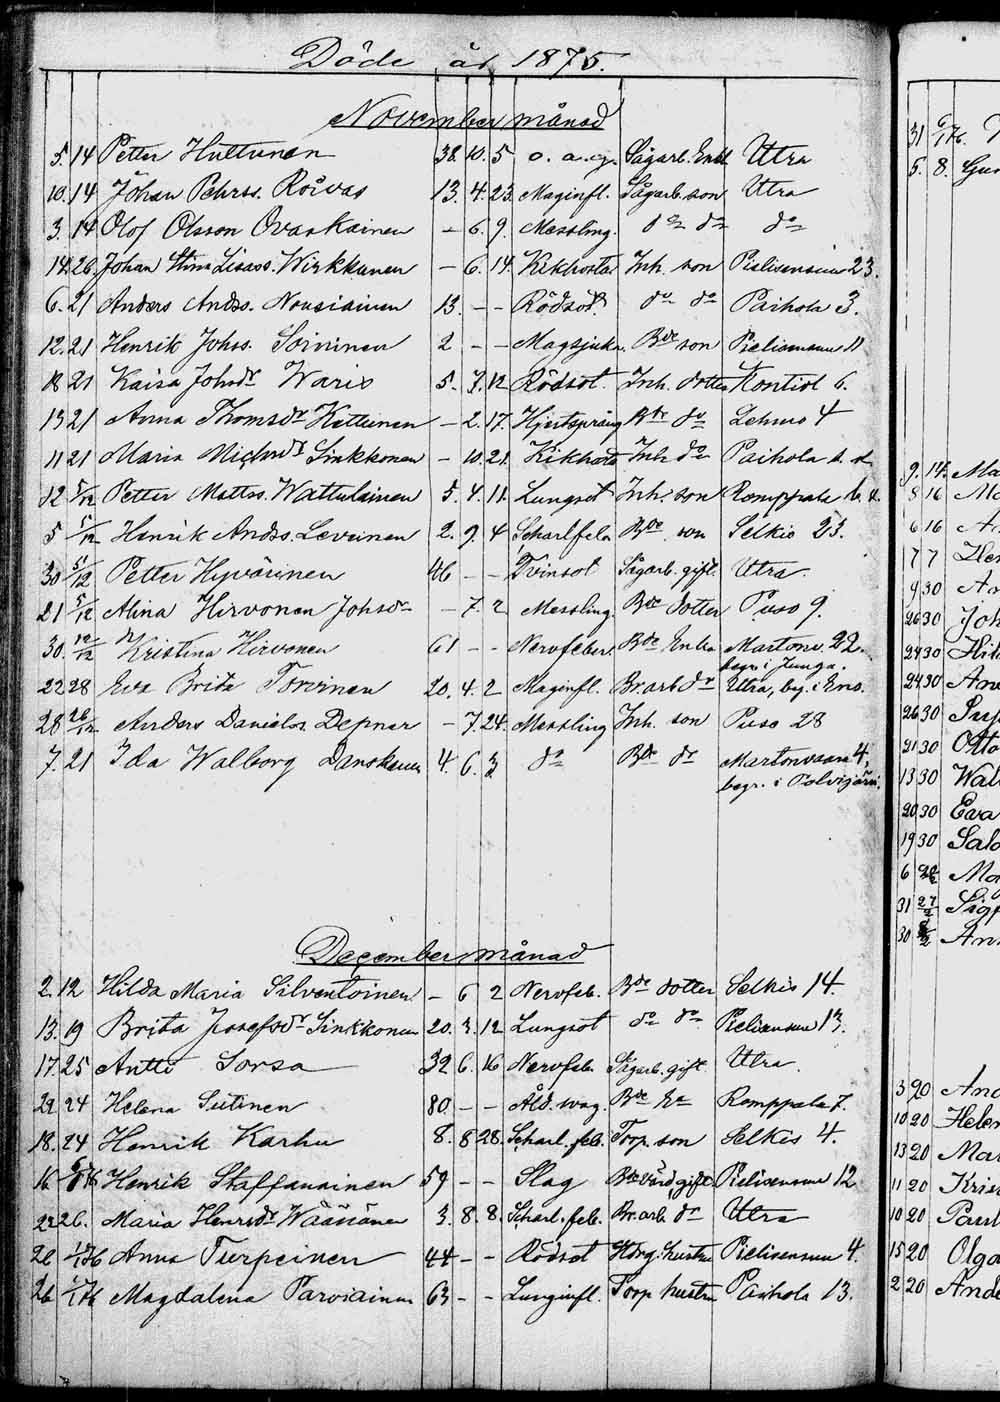 Döde år 1875.
November månad
5. 14 Petter Hultunen 38. 10. 5 o. a. g. Sågarb. Enkl. Utra
10. 14 Johan Pehrss. Roivas 13. 4. 23. Maginfl. Sågarb. son Utra
3. 14 Olof Olsson Ovaskainen - 6. 9. Messling. do do do
14. 26. Johan Stina Lisass. Wirkkunen - 6. 14. Kikhosta Inh. son Pielisensuu 23.
6. 21 Anders Andss. Nousiainen 13. - - Rödsot. do do Paihola 3.
12. 21 Henrik Johss. Soininen 2 - - Magsjuka. Bde son Pielisensuu 11
18 21 Kaisa Johsdr Waris 5. 7. 12 Rödsot. Inh. dotter Kontiol 6.
13 21 Anna Thomsdr Kettunen - 2. 17. Hjertsprång Bde do Lehmo 4
11 21 Maria Michsdr Sinkkonen - 10. 21. Kikhosta Inh do Paihola
12 5/12 Petter Mattss. Wattulainen 5. 4. 11. Lungsot Inh. son Romppala
5 5/12 Henrik Andss. Levinen 2. 9. 4 Scharlfeb. Bde son Selkis 23.
30 5/12 Petter Hyvärinen 46 - - Tvinsot Sågarb. gift. Utra.
21 5/12 Alina Hirvonen Johsdr - 7. 2 Messling. Bde dotter Puso 9.
30. 12/12 Kristina Hirvonen 61 - - Nervfeber. Bde Enka Martonv. 22.
begr. i Junga.
22 28 Eva Brita Torvinen 20. 4. 2 Maginfl. Br.arb dr Utra, beg. i Eno.
28 26/12 Anders Danielss. Depner - 7. 24. Messling Inh. son Puso 28
7. 21 Ida Walborg Danskanen 4. 6. 3 do Bde dr Martonvaara 4,
begr. i Polvijärvi.
December månad
2. 12 Hilda Maria Silventoinen - 6 2 Nervfeb. Bde dotter Selkis 14.
13. 19 Brita Josefsdr Sinkkonen 20. 3. 12 Lungsot do do Pielisensuu 13.
17. 25 Antti Sorsa 32 6. 16 Nervfeb. Sågarb. gift Utra.
22 24 Helena Siitinen 80. - - Åld. svag. Bde Ea Romppala 7.
18. 24 Henrik Karhu 8. 8 28. Scharl. feb. Torp. son Selkis 4.
16 6/1 76 Henrik Staffanainen 59 - - Slag Bdevärd, gift. Pielisensuu 12
22 26. Maria Henrsdr Väänänen 3. 8. 8. Scharl. feb. Br.arb. dr Utra
26 1/1 76 Anna Turpeinen 44 - - Rödsot Hdrg. hustru Pielisensuu 4.
26 6/1 76 Magdalena Parviainen 63 - - Lunginfl. Torp hustru Paihola 13.
31 6/1 76.
5. 8. Gus
9. 14. Ma
8 16 Ma
6 16 A
17 7 Hen
9 30 An
26 30 Joh
24 30 Hil
24 30 An
26 30 Sup
21 30 Otto
13 30 Wal
20 30 Eva
19 30 Salo
6 Ma
31 27/2 Sig
30 An
3 20 And
10 20 Helen
13 20 Mar
11 20 Kris
10 20 Paul
15 20 Olga
2 20 Ande